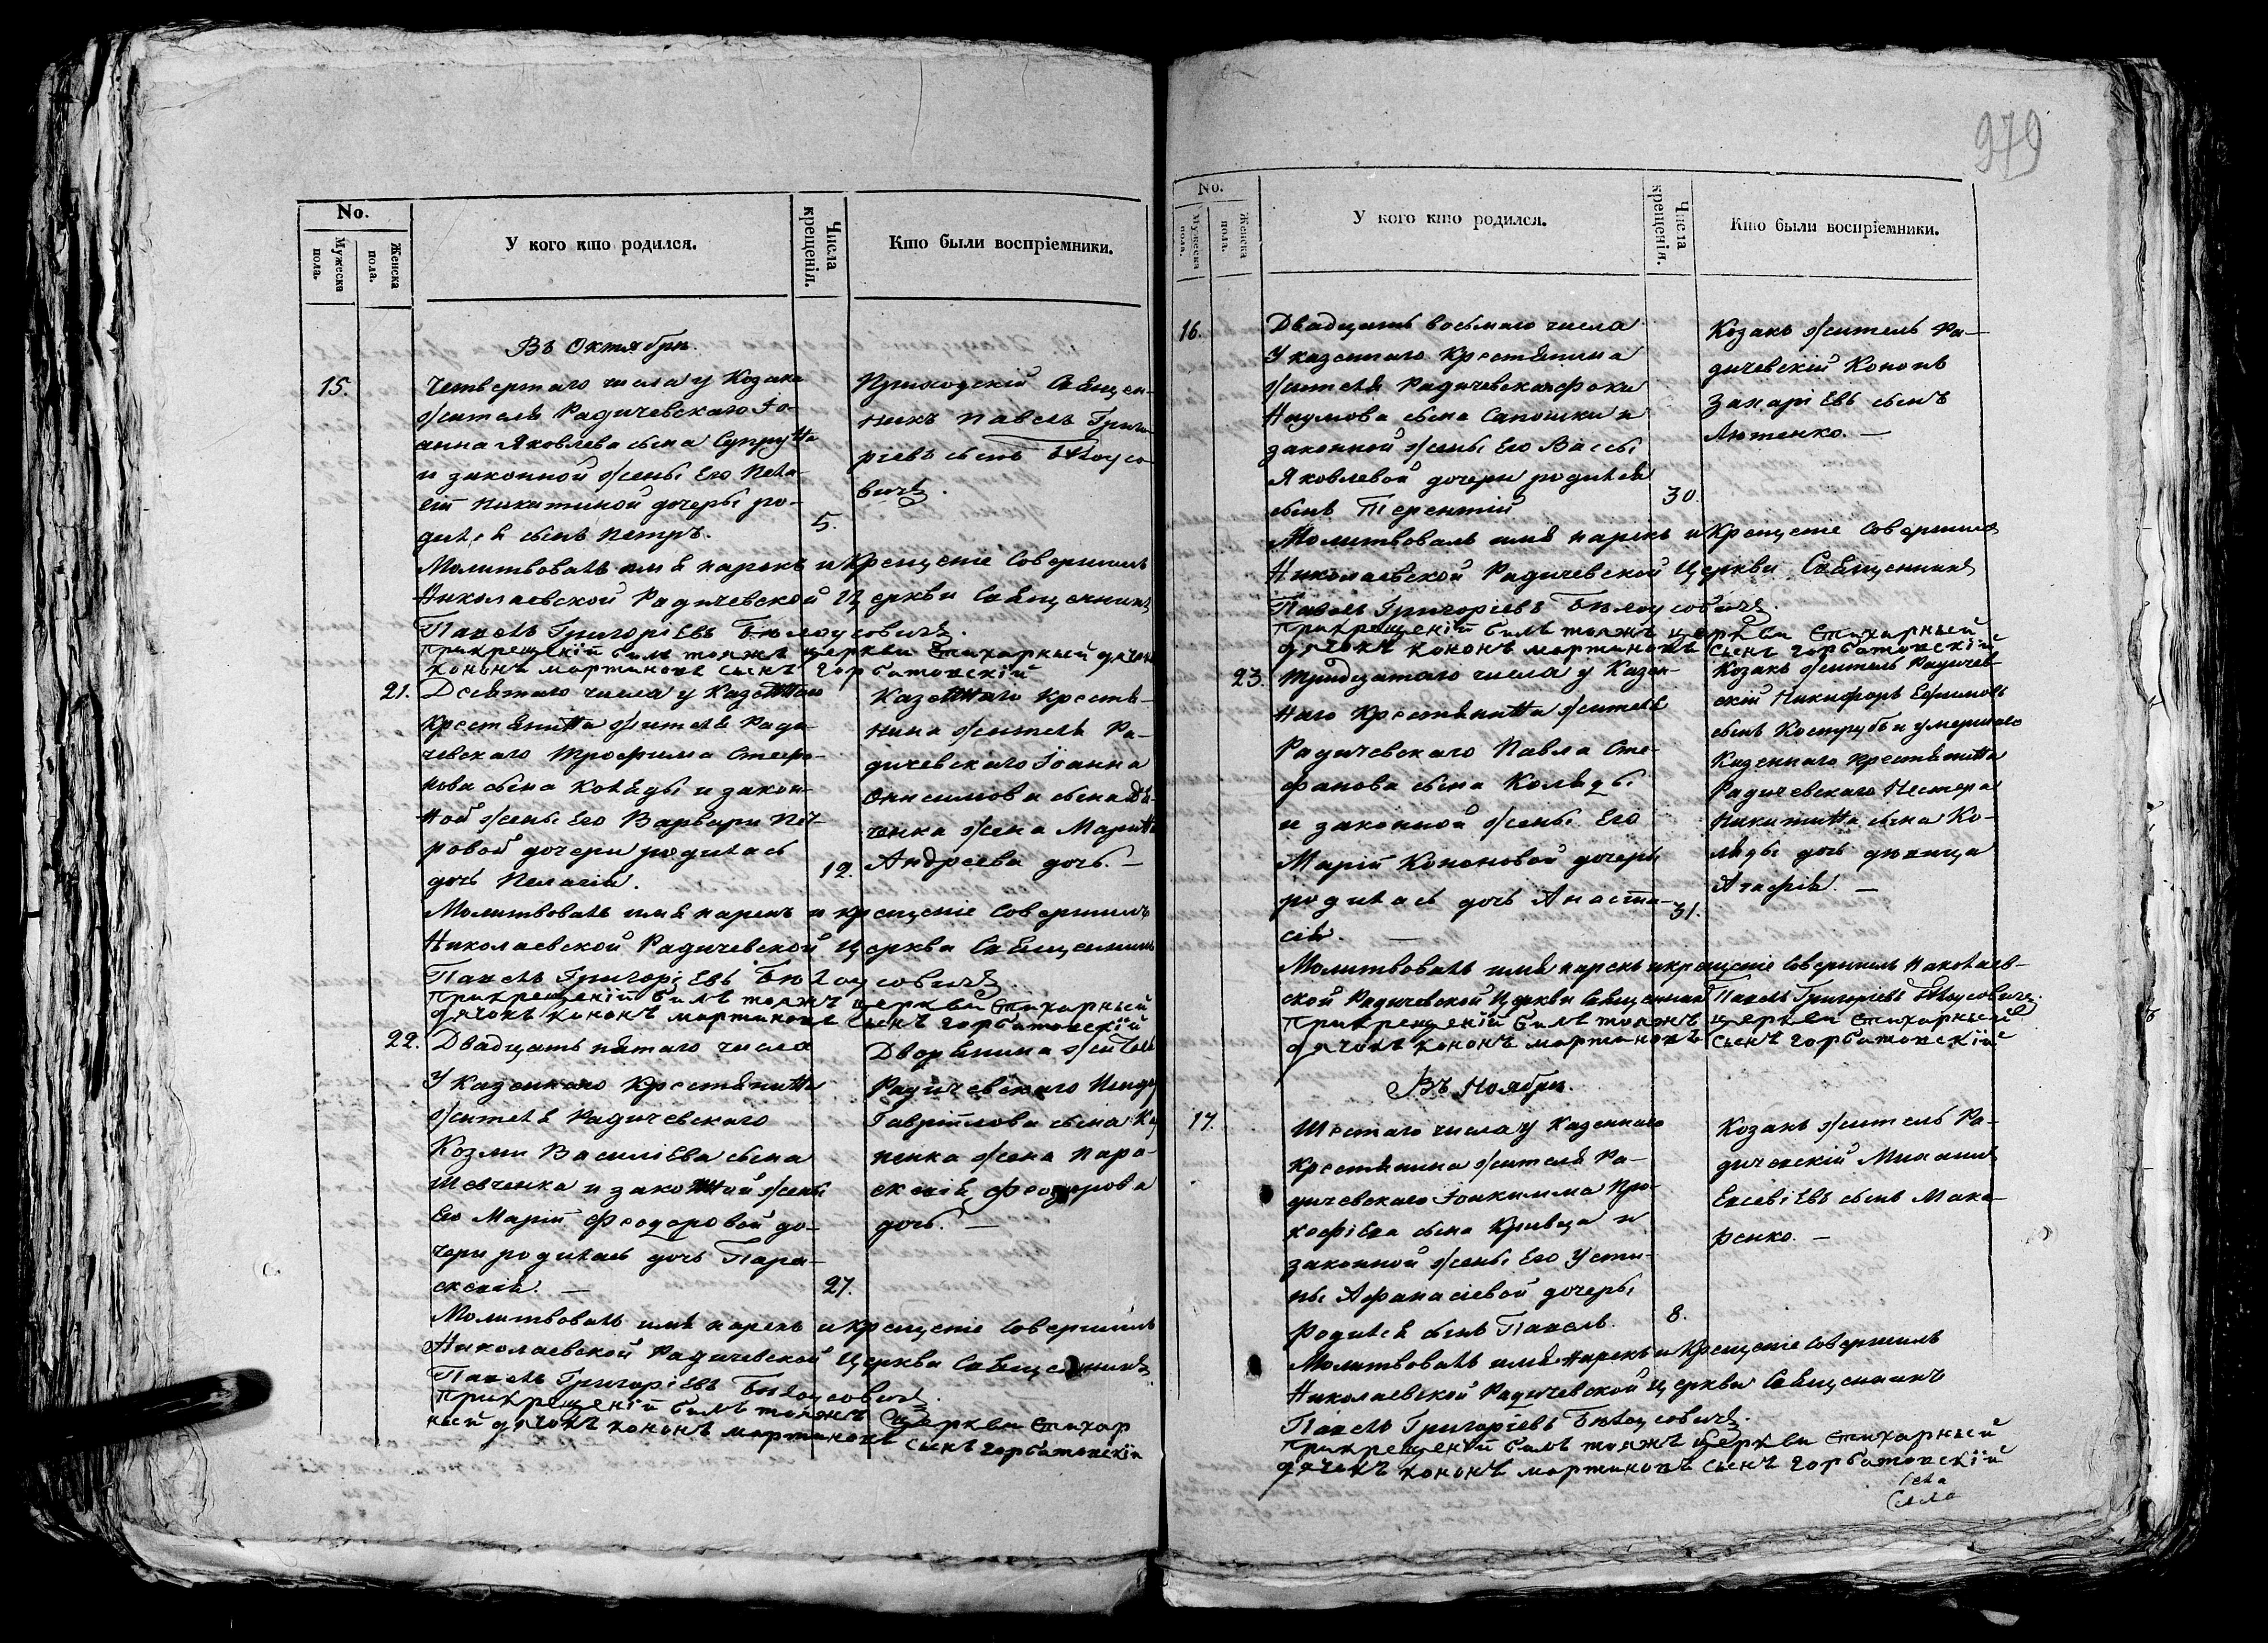 No.
Мужеска пола.
Женска пола.
У кого кто родился.
Числа крещенія.
Кто были воспріемники.
Въ Октябри.
15.
Четвертаго числа у Козака
жителя Радичевскаго Іо-
анна Яковлева сына Супруна
и законной жены Его Пела-
гіи Никитиной дочери ро-
дился сынъ Петръ.
5.
Приходскій Священ-
никъ Павелъ Григо-
ріевъ сынъ Бѣлоусо-
вичъ.
Молитвовалъ имя нарекъ и Крещеніе Совершилъ
Николаевской Радичевской Церкви Священникъ
Павелъ Григоріевъ Бѣлоусовичъ.
Прикрещеніи билъ тояжъ церкви стихарный дячокъ
кононъ мартиновъ сынъ горбатовскій
21.
Девятаго числа у Казеннаго
Крестянина жителя Ради-
чевскаго Трофима Стефа-
нова сына Коляды и закон-
ной жены Его Варвары Пет-
ровой дочери родилась
дочь Пелагія.
12.
Казеннаго Крестя-
нина жителя Ра-
дичевскаго Іоанна
Онисимова сына
жена Марина
Андреева дочь. —
Молитвовалъ имя нарекъ и крещеніе Совершилъ
Николаевской Радичевской Церкви Священникъ
Павелъ Григоріевъ Бѣлоусовичъ.
Прикрещеніи билъ тояжъ церкви стихарный
дячокъ кононъ мартиновъ сынъ горбатовскій
22.
Двадцать пятаго числа
У Казеннаго Крестянина
жителя Радичевскаго
Козми Василіева сына
Шевченка и законной жены
Его Маріи Феодоровой до-
чери родилась дочь Пара-
скевія. —
27.
Дворянина жителя
Радичевскаго
Гавріилова сына
пенка жена Пара-
скевія Феодорова
дочь. —
Молитвовалъ имя нарекъ и Крещеніе Совершилъ
Николаевской Радичевской Церкви Священникъ
Павелъ Григоріевъ Бѣлоусовичъ.
Прикрещеніи билъ тояжъ церкви стихар
ный дячокъ кононъ мартиновъ сынъ горбатовскій
979
No.
Мужеска пола.
Женска пола.
У кого кто родился.
Числа крещенія.
Кто были воспріемники.
16.
Двадцать восьмаго числа
У казеннаго Крестянина
жителя Радичевскаго Фоки
Наумова сына Сапошки и
законной жены Его Вассы
Яковлевой дочери родился
сынъ Терентій
30.
Козакъ житель Ра-
дичевскій Кононъ
Захаріевъ сынъ
Лютенко. —
Молитвовалъ имя нарекъ и Крещеніе Совершилъ
Николаевской Радичевской Церкви Священникъ
Павелъ Григоріевъ Бѣлоусовичъ.
Прикрещеніи билъ тояжъ церкви стихарный
дячокъ кононъ мартиновъ сынъ горбатовскій
23.
Тридцатаго числа у Казен-
наго Крестянина жителя
Радичевскаго Павла Сте-
фанова сына Коляды
и законной жены Его
Маріи Кононовой дочери
родилась дочь Анаста-
сія. —
31.
Козакъ житель Радичев-
скій Никифоръ Ефимовъ
сынъ Кострубъ и умершаго
Казеннаго Крестянина
Радичевскаго Нестера
Никитина сына Ко-
ляды дочь дѣвица
Агафія. —
Молитвовалъ имя нарекъ и крещеніе Совершилъ Николаев-
ской Радичевской Церкви Священникъ Павелъ Григоріевъ Бѣлоусовичъ.
Прикрещеніи билъ тояжъ церкви стихарный
дячокъ кононъ мартиновъ сынъ горбатовскій
Въ Ноябри.
17.
Шестаго числа у Казеннаго
Крестянина жителя Ра-
дичевскаго Іоакима Про-
кофіева сына Кривца и
законной жены Его Усти-
ны Афанасіевой дочери
Родился сынъ Павелъ.
8.
Козакъ житель Ра-
дичевскій Михаилъ
Евсевіевъ сынъ Мака-
ренко. —
Молитвовалъ имя нарекъ и Крещеніе Совершилъ
Николаевской Радичевской Церкви Священникъ
Павелъ Григоріевъ Бѣлоусовичъ.
Прикрещеніи билъ тояжъ церкви стихарный
дячокъ кононъ мартиновъ сынъ горбатовскій
Села